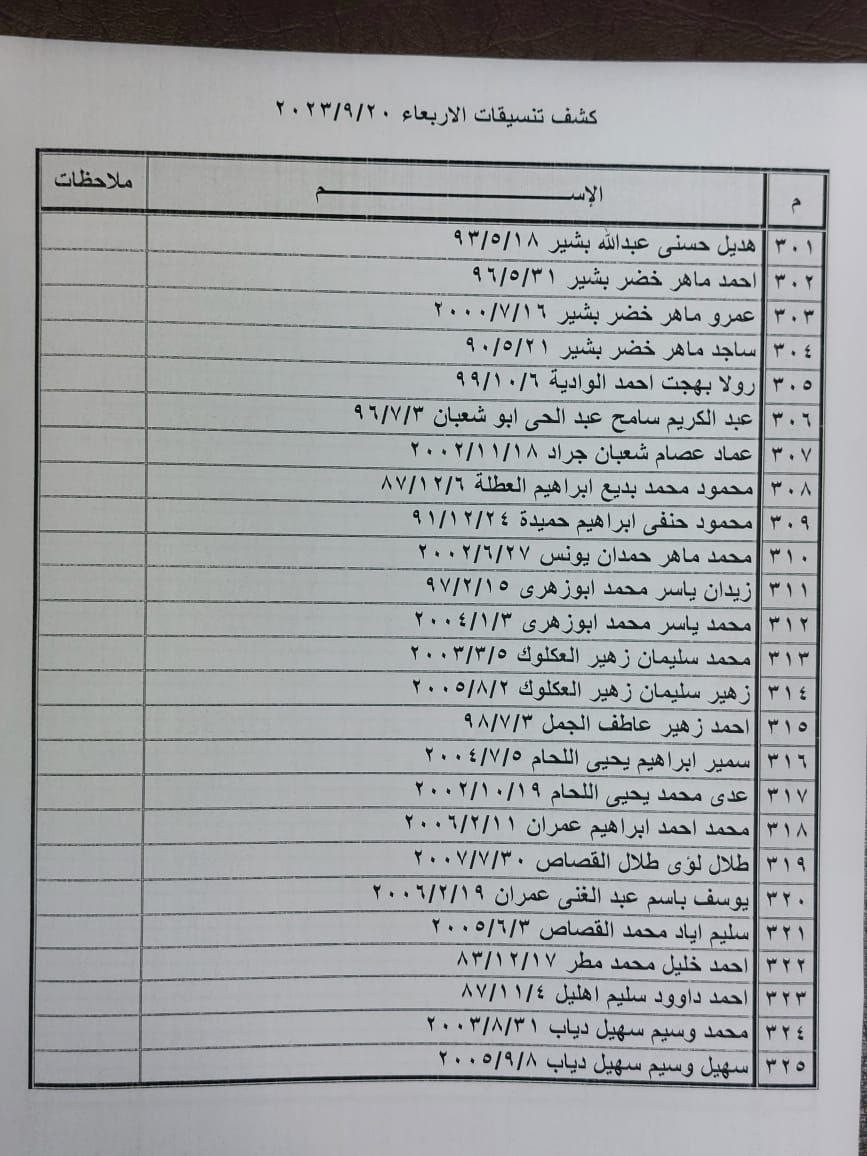 كشف تنسيقات الاربعاء ٢٠٢٣/٩/٢٠
م الإســـــــــم ملاحظات
٣٠١ هديل حسنى عبدالله بشير ٩٣/٥/١٨
٣٠٢ احمد ماهر خضر بشير ٩٦/٥/٣١
٣٠٣ عمرو ماهر خضر بشير ٢٠٠٠/٧/١٦
٣٠٤ ساجد ماهر خضر بشير ٩٠/٥/٢١
٣٠٥ رولا بهجت احمد الوادية ٩٩/١٠/٦
٣٠٦ عبد الكريم سامح عبد الحى ابو شعبان ٩٦/٧/٣
٣٠٧ عماد عصام شعبان جراد ٢٠٠٢/١١/١٨
٣٠٨ محمود محمد بديع ابراهيم العطلة ٨٧/١٢/٦
٣٠٩ محمود حنفى ابراهيم حميدة ٩١/١٢/٢٤
٣١٠ محمد ماهر حمدان يونس ٢٠٠٢/٦/٢٧
٣١١ زيدان ياسر محمد ابوزهرى ٩٧/٢/١٥
٣١٢ محمد ياسر محمد ابوزهرى ٢٠٠٤/١/٣
٣١٣ محمد سليمان زهير العكلوك ٢٠٠٣/٣/٥
٣١٤ زهير سليمان زهير العكلوك ٢٠٠٥/٨/٢
٣١٥ احمد زهير عاطف الجمل ٩٨/٧/٣
٣١٦ سمير ابراهيم يحيى اللحام ٢٠٠٤/٧/٥
٣١٧ عدى محمد يحيى اللحام ٢٠٠٢/١٠/١٩
٣١٨ محمد احمد ابراهيم عمران ٢٠٠٦/٢/١١
٣١٩ طلال لؤى طلال القصاص ٢٠٠٧/٧/٣٠
٣٢٠ يوسف باسم عبد الغنى عمران ٢٠٠٦/٢/١٩
٣٢١ سليم اياد محمد القصاص ٢٠٠٥/٦/٣
٣٢٢ احمد خليل محمد مطر ٨٣/١٢/١٧
٣٢٣ احمد داوود سليم اهليل ٨٧/١١/٤
٣٢٤ محمد وسيم سهيل دياب ٢٠٠٣/٨/٣١
٣٢٥ سهيل وسيم سهيل دياب ٢٠٠٥/٩/٨